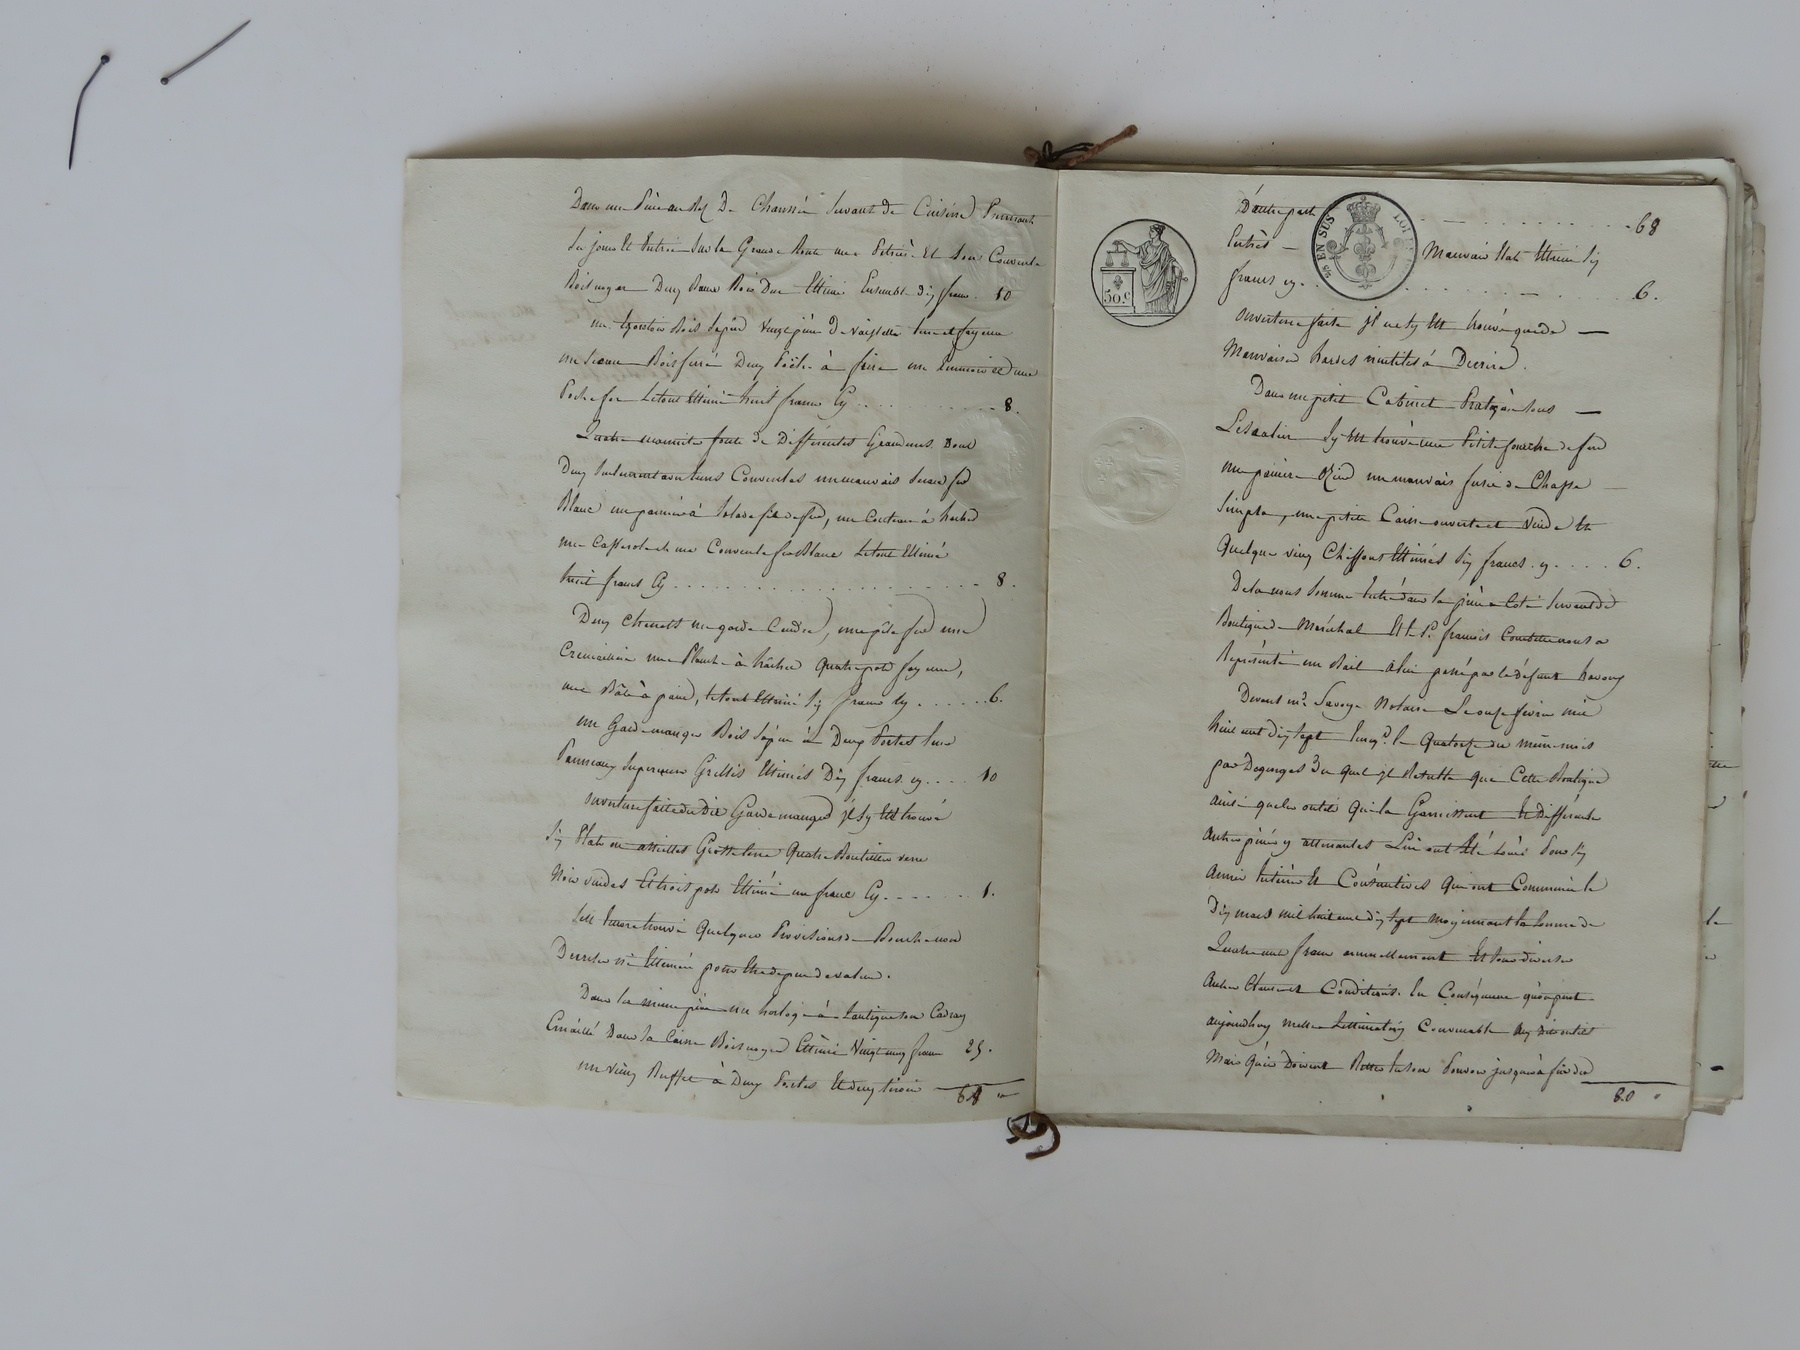 Dans une Pièce au Rez De Chaussée Servant de Cuisine Prenant
Ses jours Et Entrée Sur la Grande Route une Petrière Et Son Couvercle
Bois noyer Deux Bancs Bois Dur Estimé Ensemble dix francs 10
un Egoutoir Bois Sapin Vingt pièces de Vaisselle terre et fayence
une Seaux Bois ferré Deux Poëles à frire une Ecumoire et une
Poche fer Letout Estimé huit francs Cy . . . . . . . . . 8.
Quatre marmites fonte de Différentes Grandeurs Dont
Deux Seulement avec leurs Couvercles un mauvais Seau fer
Blanc un pannier à Salade fil de fer, un Couteau à hacher
une Casserole et une Couvercle fer Blanc Letout Estimé
huit francs Cy . . . . . . . . . . . . . . . 8.
Deux Chenets une garde Cendre, une pêle fer une
Cremaillère une Planche à hâcher Quatre pots fayence,
une Râcle à pain, letout Estimé Six francs Cy . . . . . . 6.
un Gardemanger Bois Sapin à Deux Portes Leurs
Panneaux Superieurs Grillés Estimés Dix francs cy . . . . 10
ouverture faite du Dit Gardemanger jl sy Est trouvé
Six Plats ou assiettes Grosse terre Quatre Bouteilles verre
Noir vuides Et trois pots Estimé un franc Cy . . . . . . . 1.
Sest Encore trouvé Quelques Provisions de Bouche non
Decrites ni Estimées pour Etre de peu de valeur.
Dans la même pièce une horloge à Lantique son Cadran
Emaillé Dans sa Caisse Bois noyer Estimé Vingt cinq francs 25.
un vieux Buffet à Deux Portes Et deux tiroirs
68
D'autre part . . . . . . . . . . . . 68
EN SUS
50.c
Mauvais Etat Estimé Six
francs cy . . . . . . . . . 6.
ouverture faite jl ne sy Est trouvé que de
Mauvaises hardes inutiles à Decrire.
Dans un petit Cabinet Pratiqué Sous
Lescalier Sy Est trouvé une Petite fourche de fer
un pannier Ozier un mauvais fusil de Chasse
Simple, une petite Caisse ouverte et Vuide Et
Quelque vieux Chiffons Estimés Six francs cy . . . . 6.
De la nous Sommes Entré dans la pièce a Coté Servant de
Boutique de Maréchal Et le Sr. francois nous a
Représenté un Bail à lui passé par le défunt
Devant me. Savoye Notaire Le onze fevrier mil
huit cent dix Sept Enreg.é le Quatorze du même mois
par Degeorges Du quel jl Resulte que Cette Boutique
ainsi que les outils Qui la Garnissent Et Différentes
autres pièces y attenantes Lui ont Eté Loués Pour Six
années Entières Et Consécutives Qui ont Commencé le
Dix mars mil huit cent dix Sept moyennant la Somme de
Quatre cent francs annuellement Et Sous diverses
Autres Clauses et Conditions. En Conséquence
aujourdhuy
Mais Qui Doivent Rester En son Pouvoir jusques à fin de
80